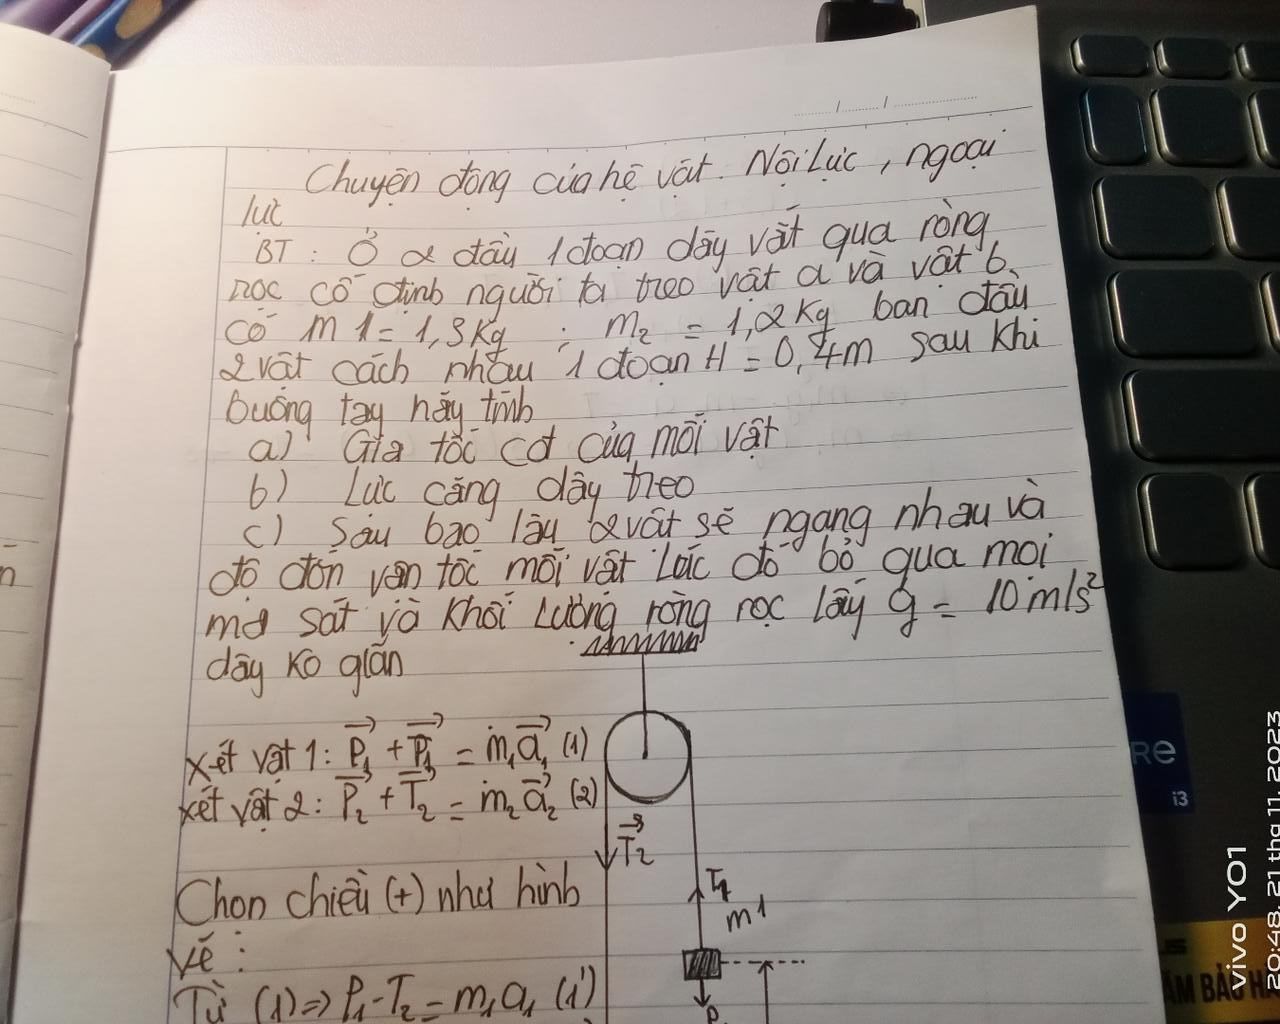 Chuyện động của hệ vật. Nội Lực, ngoại
lực
BT: Ở 2 đầu 1 đoạn dây vắt qua ròng
rọc cố định người ta treo vật a và vật b
có m1 = 1,3 Kg ; m₂ = 1,2 Kg ban đầu
2 vật cách nhau 1 đoạn H = 0,4m sau khi
buông tay hãy tính
a) Gia tốc cđ của mỗi vật
b) Lực căng dây treo
c) Sau bao lâu 2 vật sẽ ngang nhau và
độ đớn vận tốc mỗi vật lúc đó bỏ qua mọi
ma sát và khối lượng ròng rọc lấy g = 10 m/s²
dây ko giãn
Xét vật 1: P₁ + P₁ = m₁a₁ (1)
xét vật 2: P₂ + T₂ = m₂a₂ (2)
T₂
Chọn chiều (+) như hình
T₁
m1
vẽ:
Từ (1) => P₁ - T₂ = m₁a₁ (1')
P
RE
i3
vivo Y01
20:48, 21 thg 11, 2023